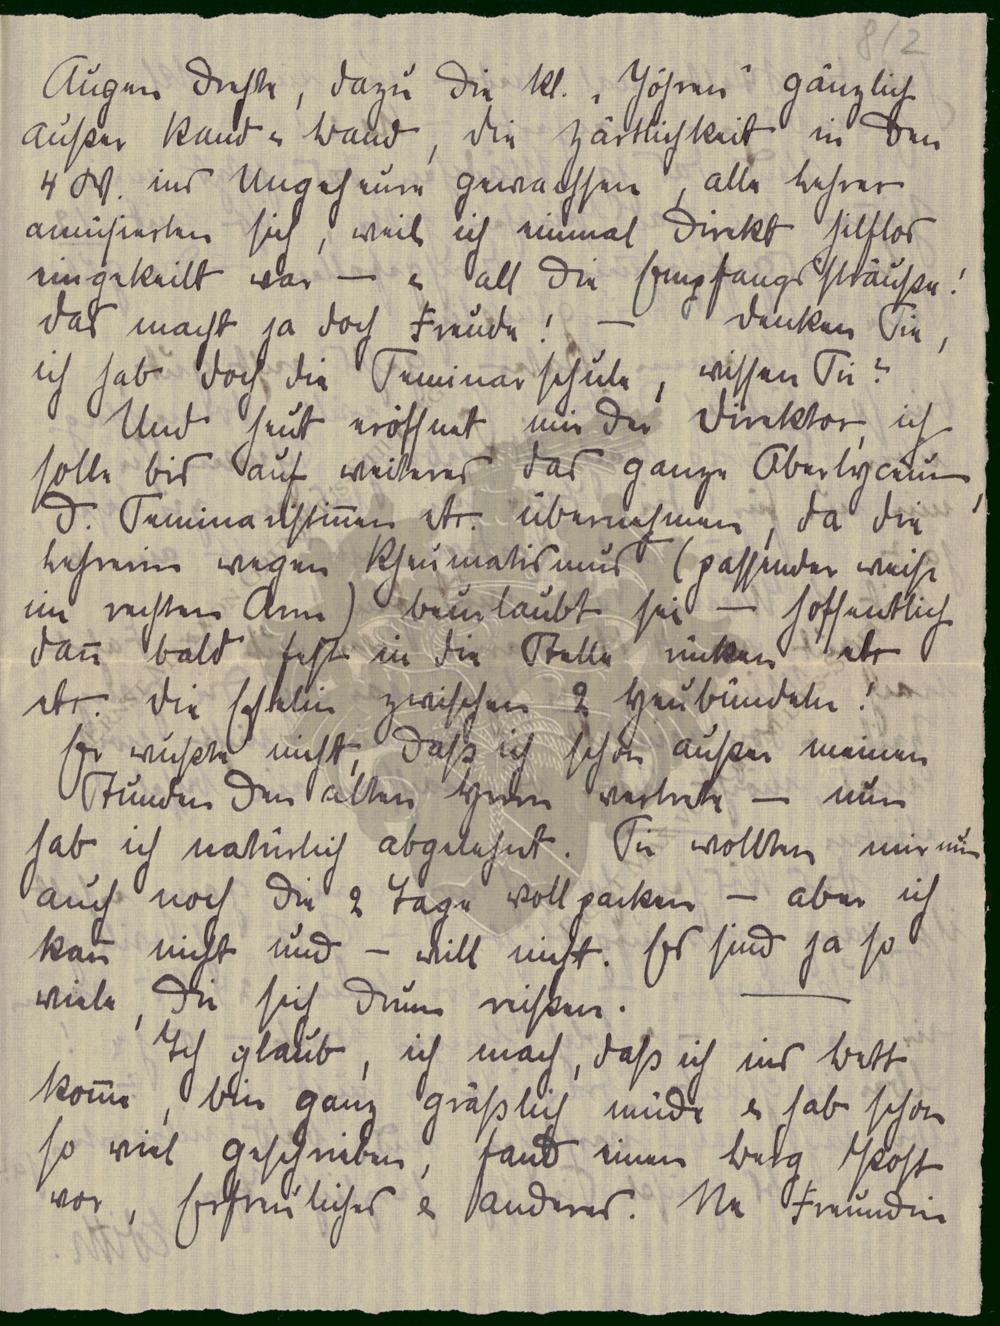 8/2
Augen drehte, dazu die kl. „Jöhren“ gänzlich
außer Rand u Band, die Zärtlichkeit in den
4 W. ins Ungeheure gewachsen, alle Lehrer
amüsierten sich, weil ich einmal direkt hilflos
eingekeilt war — u all die Empfangssträuße!
das macht ja doch Freude! — Denken Sie,
ich hab doch die Seminarschule, wissen Sie?
Und heut eröffnet mir der Direktor, ich
solle bis auf weiteres das ganze Oberlyceum,
d. Seminaristiñen etc. übernehmen, da die
Lehrerin wegen Rheumatismus (passender weise
im rechten Arm) beurlaubt sei — hoffentlich
dañ bald fest in die Stelle rücken etc
etc. die Eselin zwischen 2 Heubündeln!
Er wußte nicht, daß ich schon außer meinen
Stunden den alten Herrn vertrete — nun
hab ich natürlich abgelehnt. Sie wollten mir nun
auch noch die 2 Tage vollpacken — aber ich
kañ nicht und — will nicht. Es sind ja so
viele, die sich drum reißen. —
Ich glaub, ich mach, daß ich ins Bett
kom̄e, bin ganz gräßlich müde u hab schon
so viel geschrieben, fand einen Berg Post
vor, Erfreuliches u anderes. Ne Freundin